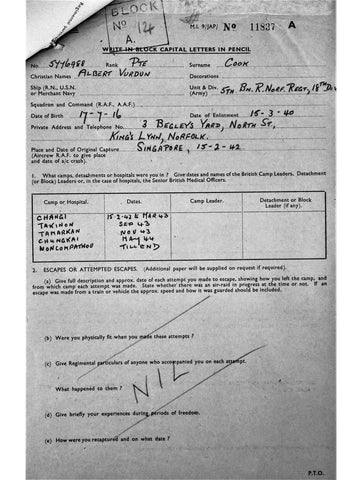 BLOCK
No 124
A.
M.I. 9/JAP/ No 11827 A
WRITE IN BLOCK CAPITAL LETTERS IN PENCIL
No. 5776988 Rank PTE Surname COOK
Christian Names ALBERT VURDUN Decorations
Ship (R.N., U.S.N. or Merchant Navy Unit & Div. (Army) 5TH BN. R. NORF. REGT, 18TH DIV
Squadron and Command (R.A.F., A.A.F.)
Date of Birth 17-7-16 Date of Enlistment 15-3-40
Private Address and Telephone No. 3 BEGLEY'S YARD, NORTH ST,
KING'S LYNN, NORFOLK.
Place and Date of Original Capture SINGAPORE, 15-2-42
(Aircrew R.A.F. to give place
and date of a/c crash).
1. What camps, detachments or hospitals were you in ? Give dates and names of the British Camp Leaders, Detachment
(or Block) Leaders, or, in the case of hospitals, the Senior British Medical Officers.
Camp or Hospital. Dates. Camp Leader. Detachment or Block Leader (if any).
CHANGI 15-2-42 to MAR 43
TAKINON SEP 43
TAMARKAN NOV 43
CHUNGKAI MAY 44
NONCOMPATHOU TILL END
2. ESCAPES OR ATTEMPTED ESCAPES. (Additional paper will be supplied on request if required).
(a) Give full description and approx. date of each attempt you made to escape, showing how you left the camp, and
from which camp each attempt was made. State whether there was an air-raid in progress at the time or not. If an
escape was made from a train or vehicle the approx. speed and how it was guarded should be included.
(b) Were you physically fit when you made these attempts ?
(c) Give Regimental particulars of anyone who accompanied you on each attempt.
What happened to them ?
NIL
(d) Give briefly your experiences during periods of freedom.
(e) How were you recaptured and on what date ?
P.T.O.